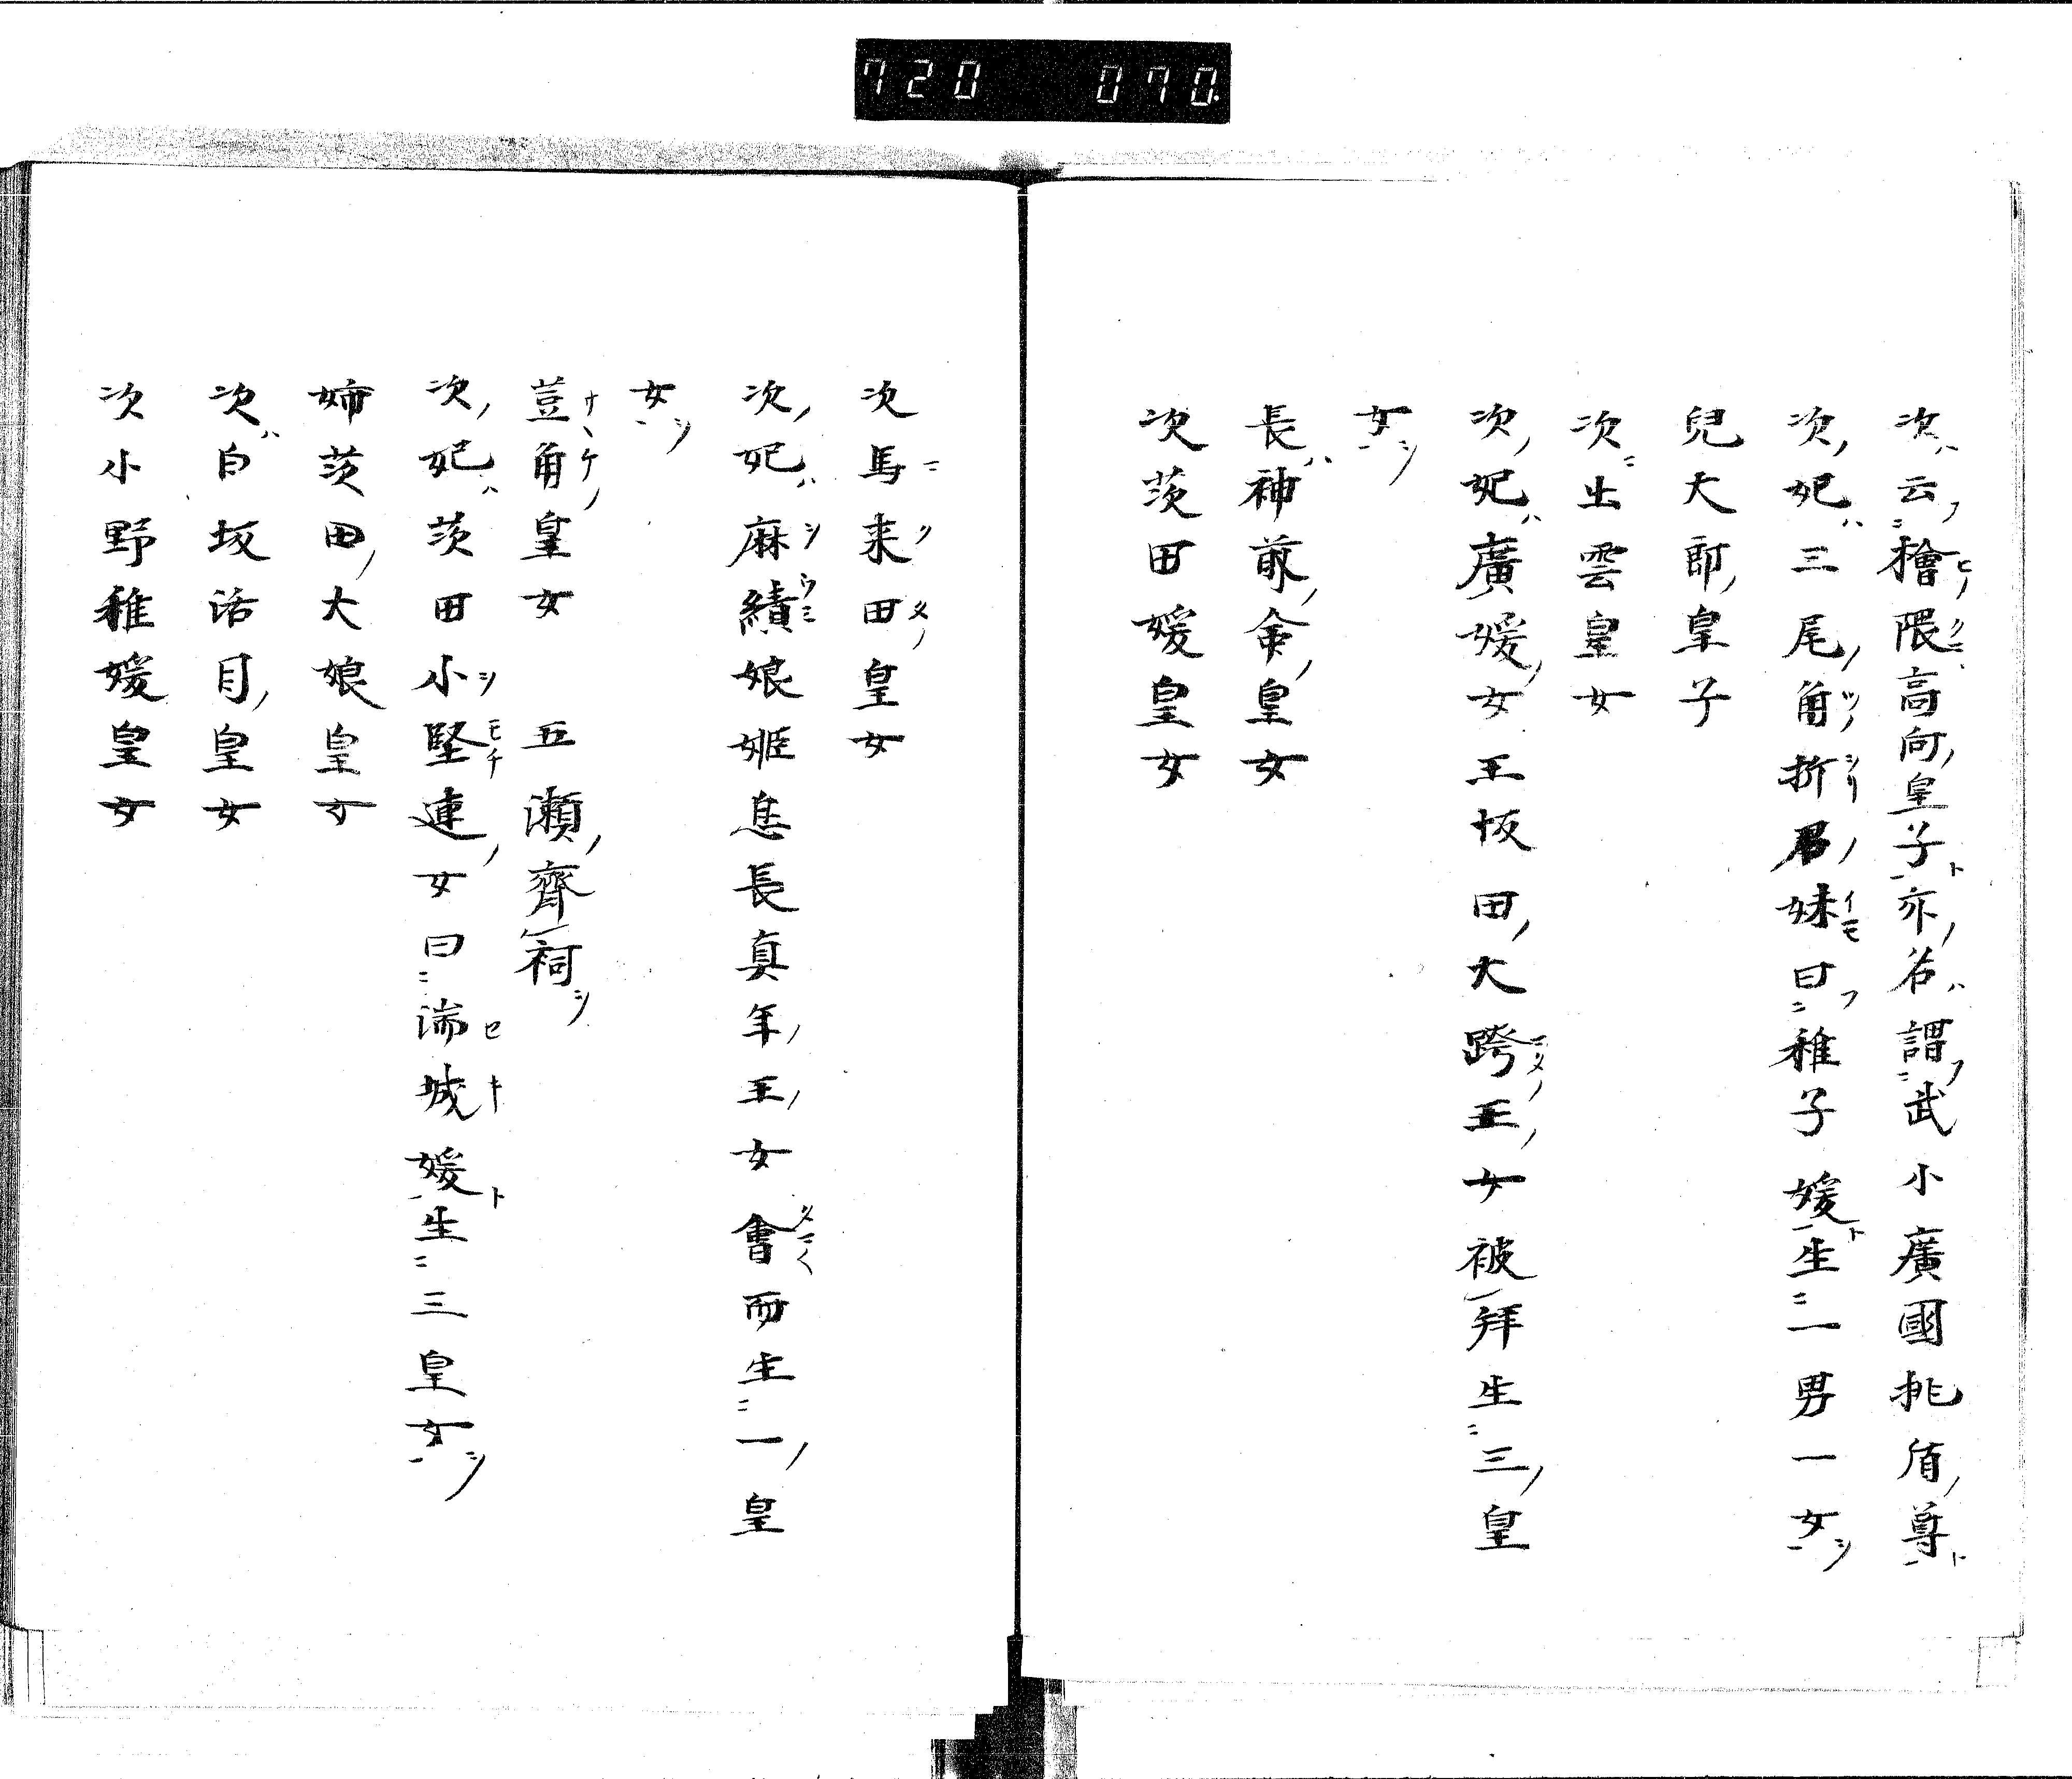 720 070
次云檜隈高向皇子亦名謂武小廣國排盾尊
次妃三尾角折君妹曰稚子媛生一男一女
兒大郎皇子
次出雲皇女
次妃廣媛女王坂田大跨王女被拜生三皇
女
長神前命皇女
次茨田媛皇女
次馬来田皇女
次妃麻績娘姫息長真年王女會而生一皇
女
荳角皇女 五瀬齊祠
次妃茨田小堅連女曰湍城媛生三皇女
姉茨田大娘皇女
次白坂活目皇女
次小野稚媛皇女